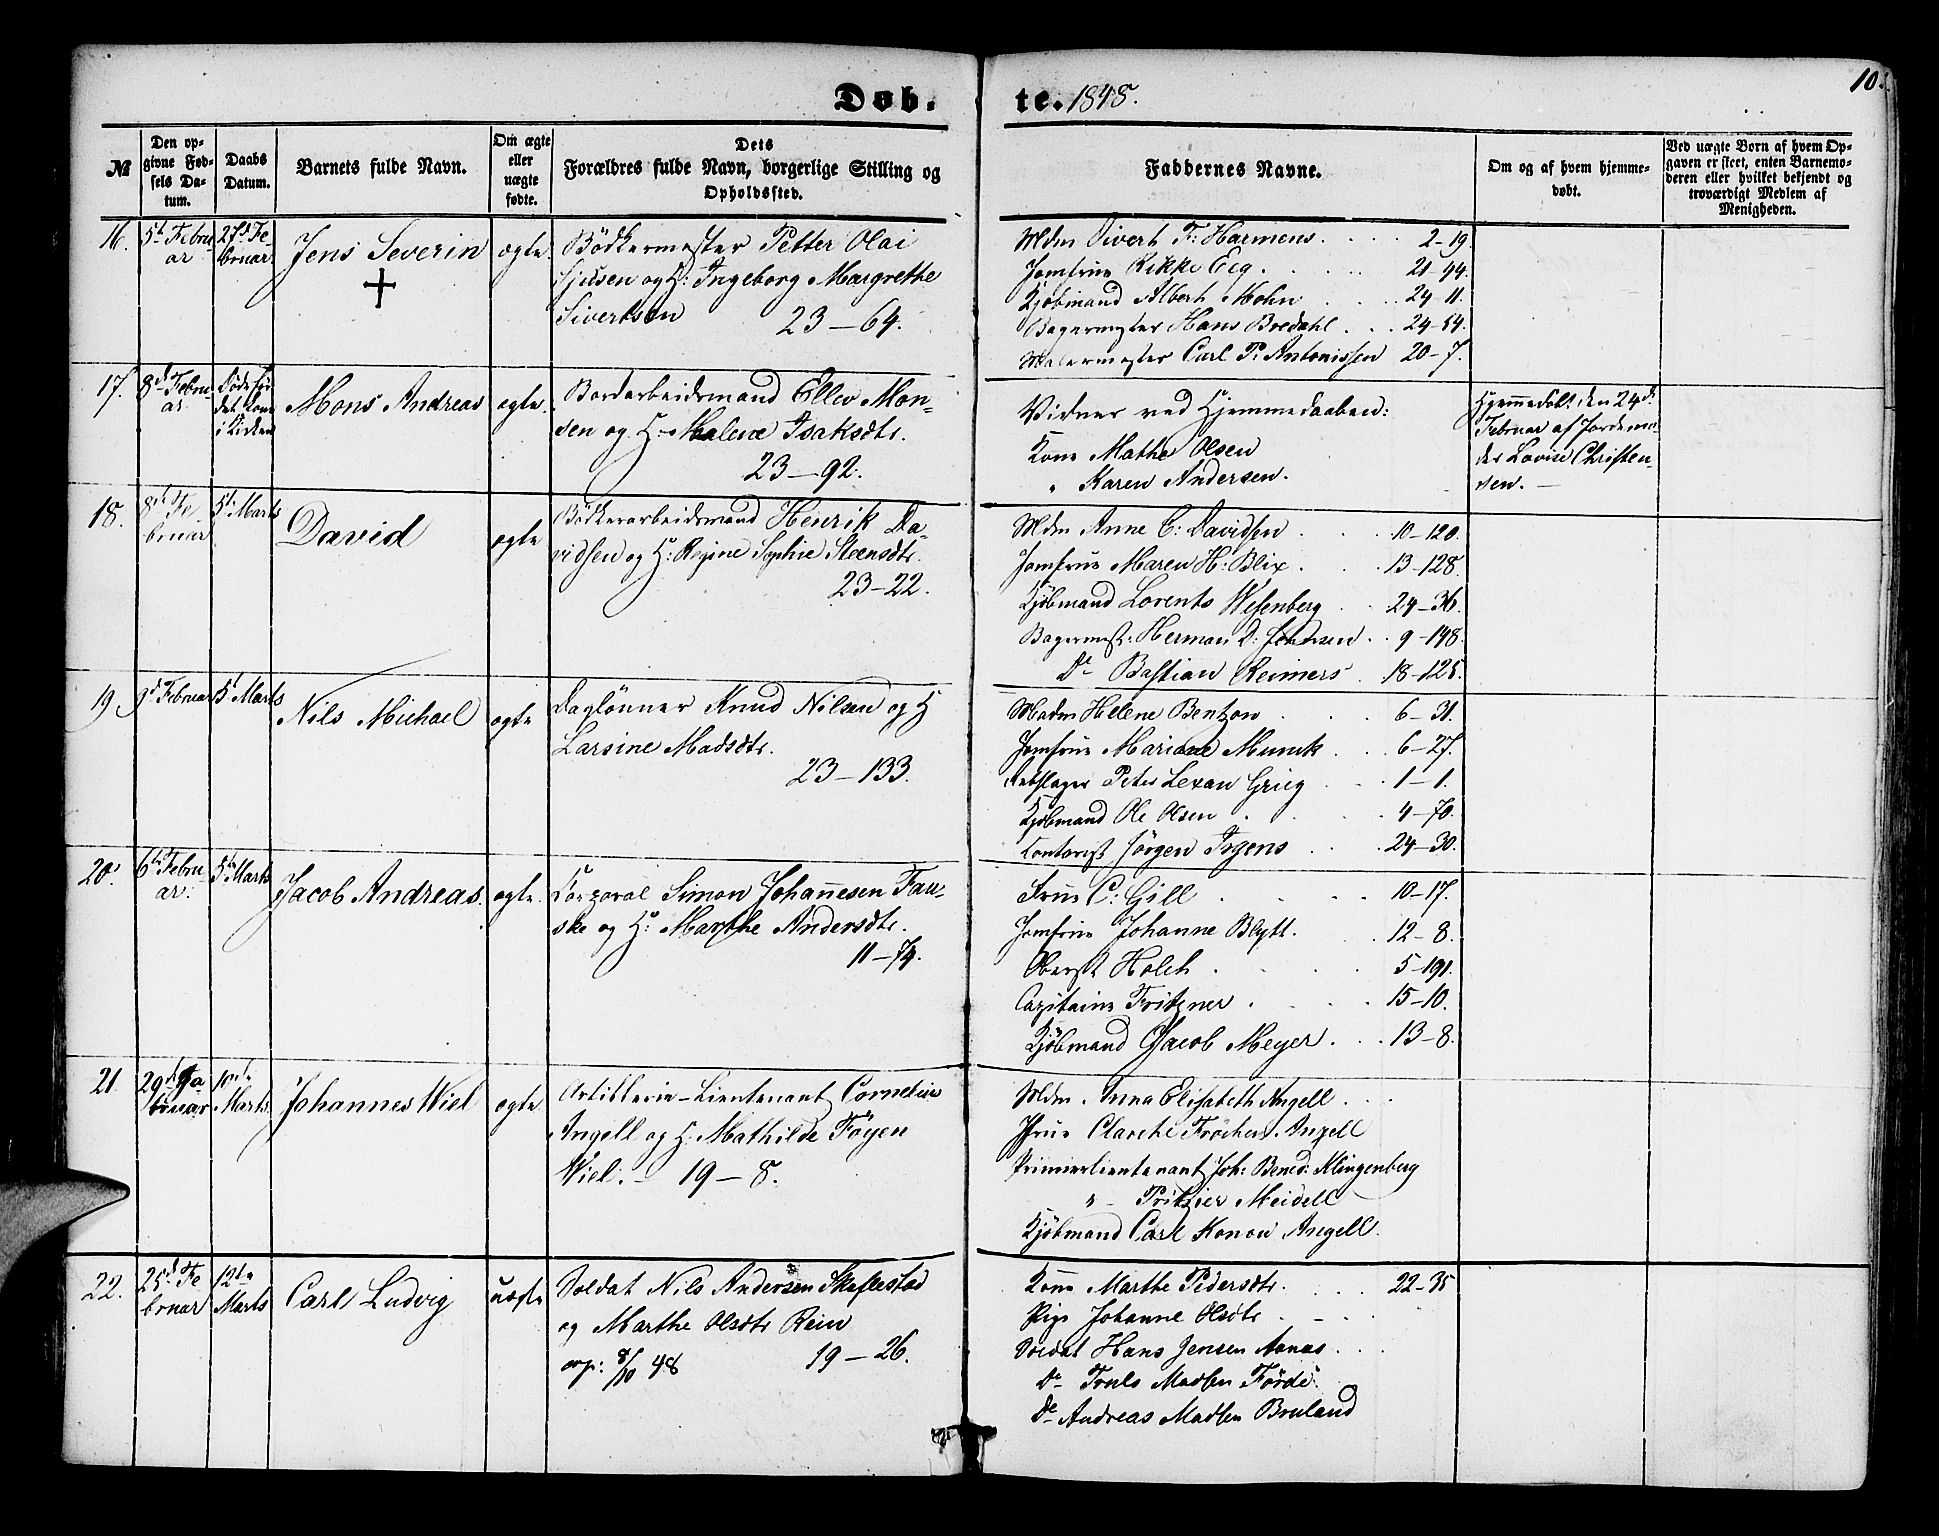 Døb. te. 1848.
10.
№
Den op-
givne Fød-
sels Da-
tum.
Daabs
Datum.
Barnets fulde Navn.
Om ægte
eller
uægte
fødte.
Dets
Forældres fulde Navn, borgerlige Stilling og
Opholdssted.
Faddernes Navne.
Om og af hvem hjemme-
døbt.
Ved uægte Børn af hvem Op-
gaven er skeet, enten Barnemo-
deren eller hvilket bekjendt og
troværdigt Medlem af
Menigheden.
16.
5te Febru
ar
27de Fe-
bruar
Jens Severin
ægte
Bødkermester Petter Olai
og H: Ingeborg Margrethe
Sivertsen 23-64.
Mdm Sivert F: Harmens 2-19.
Jomfrue Rikke Eeg 21-44.
Kjøbmand Albert Mohn 24-11.
Bagermester Hans Bredahl 24-54.
Malermester Carl P. Antonissen 20-7.
17.
8de Febru
ar
Mons Andreas
ægte
Bordarbeidsmand Ellev Mon-
sen og H: Malene Isaksdtr.
23-92.
Vidner ved Hjemmedaaben:
Kone Mathe Olsen
" Karen Andersen.
Hjemmedøbt den 24de
Februar af Jordemo-
der Lovise Christen-
sen.
18.
8de Fe
bruar
5te Marts
David
ægte
Bødkerarbeidsmand Henrik Da-
vidsen og H: Regine Sophie Steensdtr.
23-22.
Mdm Anne C: Davidsen 10-120.
Jomfrue Maren H: Blix 13-128.
Kjøbmand Lorents Wesenberg 24-36.
Bagermest: Herman D: Jordsen 9-148.
Do Bastian Reimers 18-125.
19.
9de Februar
5te Marts
Nils Michael
ægte
Daglønner Knud Nilsen og H
Larsine Madsdtr.
23-133.
Madm Helene Bentzon 6-31.
Jomfrue Mariane Munck 6-27.
Rebslager Peter Lexau Grieg 1-1.
Kjøbmand Ole Olsen 4-70.
Kontorist Jørgen Irgens 24-30.
20.
6te Febru-
ar.
5te Marts
Jacob Andreas.
ægte.
Corporal Simon Johannesen Fau-
ske og H: Marthe Andersdtr.
11-74.
Frue C: Gill 10-17.
Jomfrue Johanne Blytt. 12-8.
Oberst Holck 5-191.
Capitaine Fritzner 15-10.
Kjøbmand Jacob Meyer 13-8.
21.
29de
bruar
10de
Marts
Johannes Wiel
ægte
Artillerie-Lieutenant Cornelius
Angell og H: Mathilde Føyen
Wiel. 19-8.
Mdm. Anna Elisabeth Angell
Frue Clarche Frøchen Angell
Primierlieutenant Joh: Bened: Klingenberg
" Fritzner Meidell
Kjøbmand Carl Konow Angell.
22.
25de Fe
bruar
12te
Marts
Carl Ludvig
uægte
Soldat Nils Andersen Skeflestad
og Marthe Olsdtr Rein
19-26.
8/10 48
Kone Marthe Pedersdtr. 22-35
Pige Johanne Olsdtr
Soldat Hans Jensen Aanas
Do Truls Madsen Førde
Do Andreas Madsen Bruland